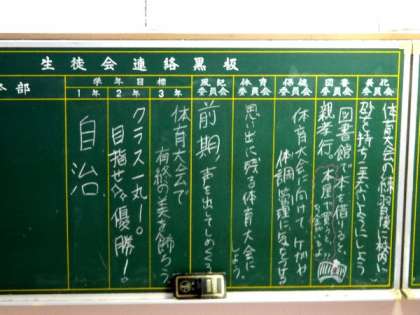 生徒会連絡黒板
美化委員会
体育大会の練習後に校内に
砂を持ちこまないようにしよう
図書委員会
図書館で本を借りると、
親孝行。
保健委員会
体育大会に向けて、ケガや
体調管理に気をつける
体育委員会
思い出に残る体育大会に
しよう。
風紀委員会
前期、声を出してしめくくろう
学年目標
3年
体育大会で
有終の美を飾ろう
2年
クラス一丸!。
目指せ優勝!
1年
自治
本部